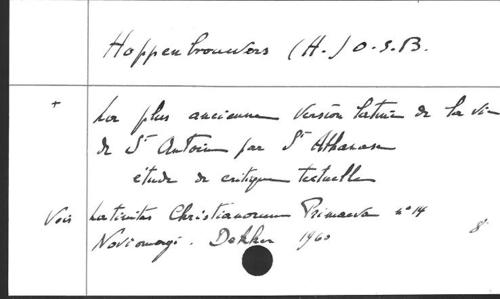 Hoppenbrouwers (H.) O.S.B.
+ La plus ancienne version latine de la vie
de St Antoine par St Athanase
étude de critique textuelle
Voir Latinitas Christianorum Primaeva n° 14
Noviomagi. Dekker 1960 8°